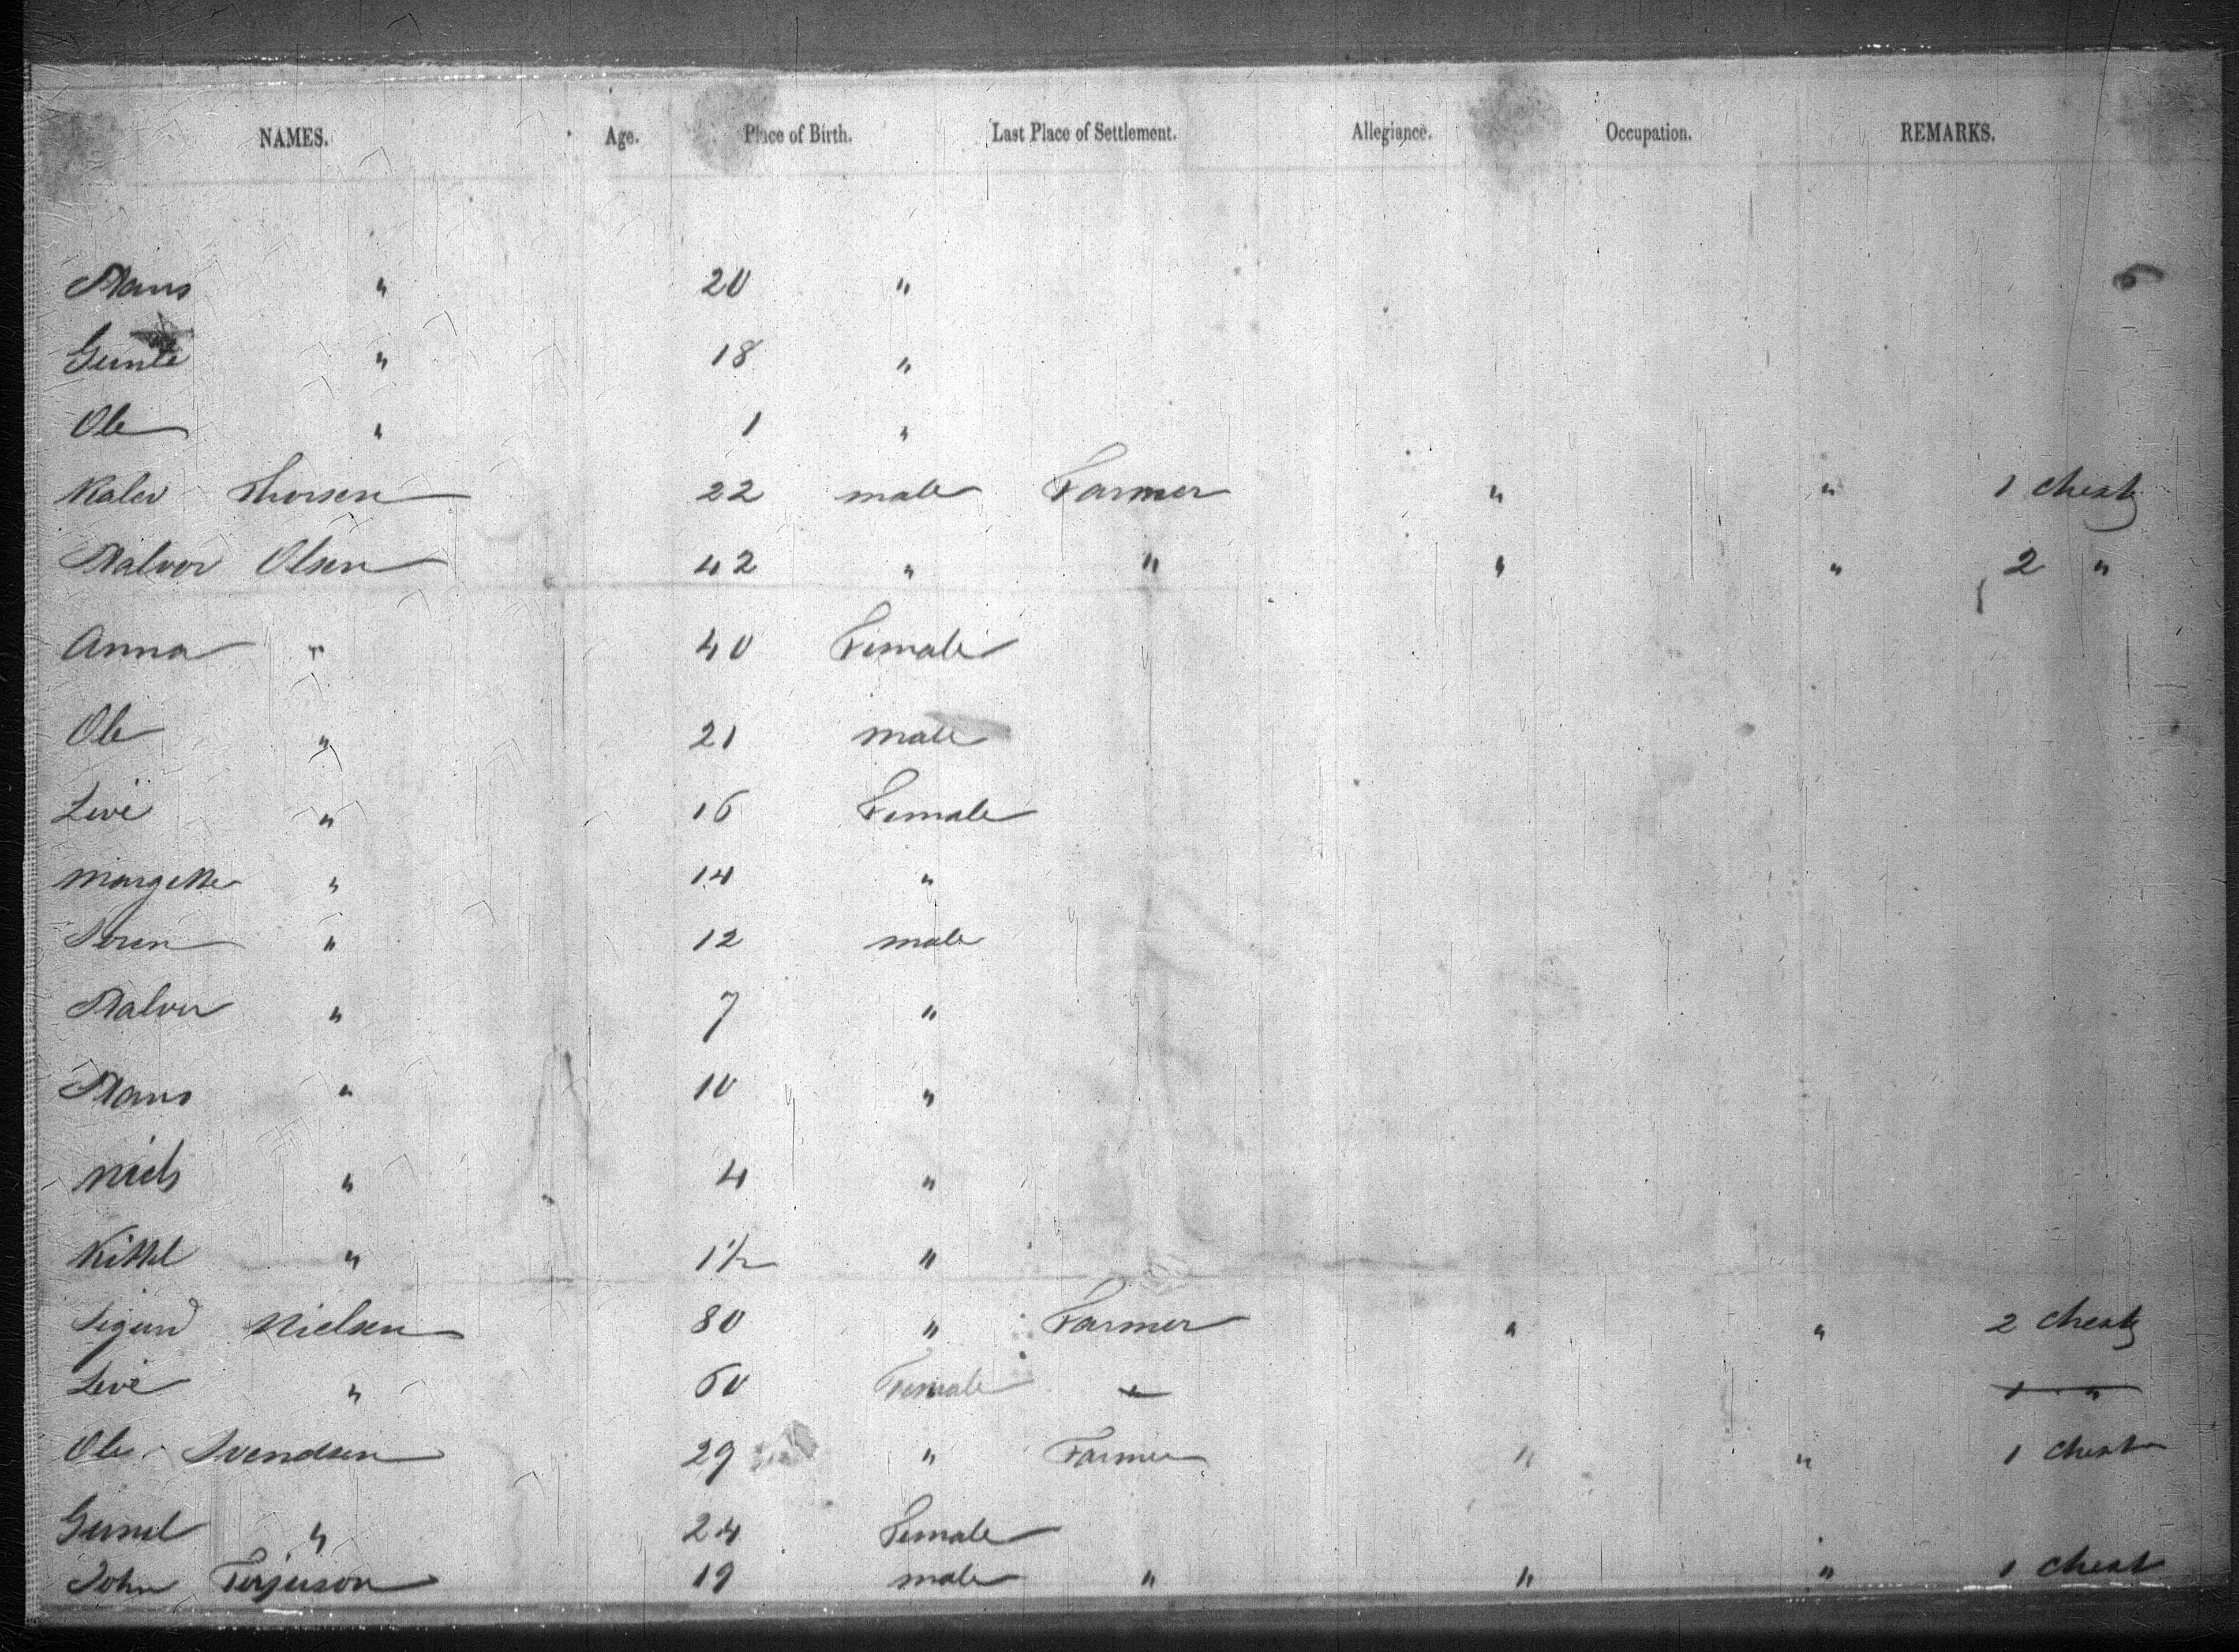 NAMES. Age. Place of Birth. Last Place of Settlement. Allegiance. Occupation. REMARKS.
Hans " 20 "
" 18 "
Ole " 1 "
Thorsen 22 male Farmer " " 1 chest
Halvor Olsen 42 " " " " 2 "
Anna " 40 Female
Ole " 21 male
Live " 16 Female
Margethe " 14 "
Soren " 12 male
Halvor " 7 "
Hans " 10 "
Niels " 4 "
Kittel " 1½ "
Sigurd Nielsen 80 " Farmer " " 2 chests
Live " 60 Female " 1 "
Ole Svendsen 29 " Farmer " " 1 chest
Gunil " 24 Female
John Terjerson 19 male " " " 1 chest